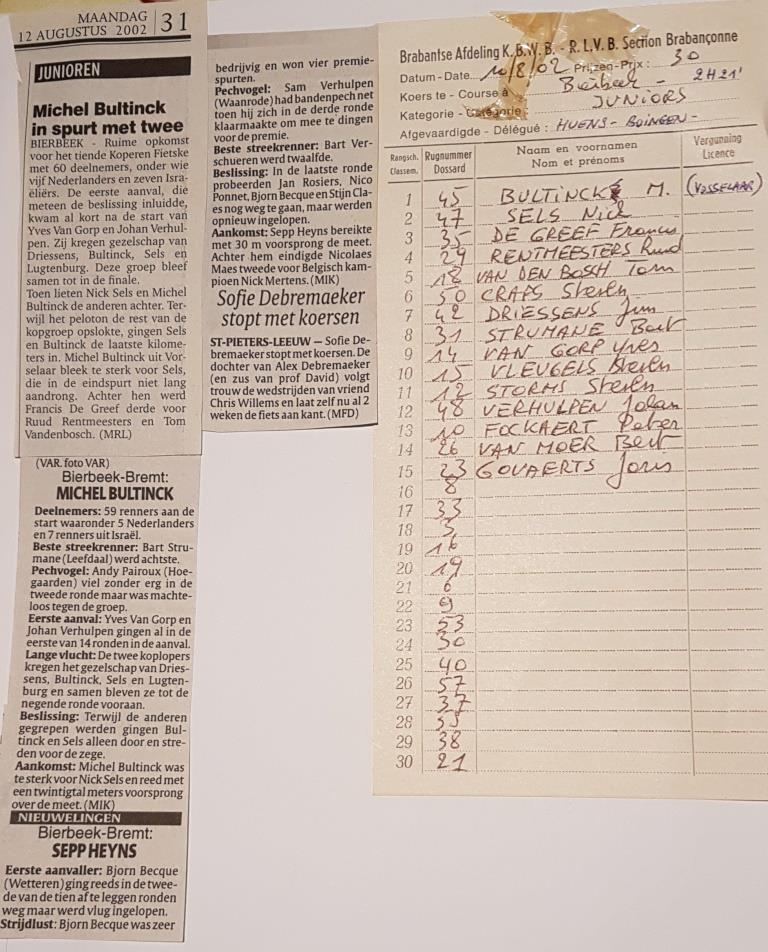 MAANDAG
12 AUGUSTUS 2002
31
JUNIOREN
Michel Bultinck
in spurt met twee
BIERBEEK - Ruime opkomst
voor het tiende Koperen Fietske
met 60 deelnemers, onder wie
vijf Nederlanders en zeven Isra-
eliërs. De eerste aanval, die
meteen de beslissing inluidde,
kwam al kort na de start van
Yves Van Gorp en Johan Verhul-
pen. Zij kregen gezelschap van
Driessens, Bultinck, Sels en
Lugtenburg. Deze groep bleef
samen tot in de finale.
Toen lieten Nick Sels en Michel
Bultinck de anderen achter. Ter-
wijl het peloton de rest van de
kopgroep opslokte, gingen Sels
en Bultinck de laatste kilome-
ters in. Michel Bultinck uit Vor-
selaar bleek te sterk voor Sels,
die in de eindspurt niet lang
aandrong. Achter hen werd
Francis De Greef derde voor
Ruud Rentmeesters en Tom
Vandenbosch. (MRL)
(VAR, foto VAR)
Bierbeek-Bremt:
MICHEL BULTINCK
Deelnemers: 59 renners aan de
start waaronder 5 Nederlanders
en 7 renners uit Israël.
Beste streekrenner: Bart Stru-
mane (Laakdal) werd achtste.
Pechvogel: Ady Pairoux (Hoe-
gaarden) viel zonder erg in de
tweede ronde maar was machte-
loos tegen de groep.
Eerste aanval: Yves Van Gorp en
Johan Verhulpen gingen al in de
eerste van 14 ronden in de aanval.
Lange vlucht: De twee koplopers
kregen het gezelschap van Dries-
sens, Bultinck, Sels en Lugten-
burg en samen bleven ze tot de
negende ronde vooraan.
Beslissing: Terwijl de anderen
gegrepen werden gingen Bul-
tinck en Sels alleen door en stre-
den voor de zege.
Aankomst: Michel Bultinck was
te sterk voor Nick Sels en reed met
een twintigtal meters voorsprong
over de meet. (MIK)
NIEUWELINGEN
Bierbeek-Bremt:
SEPP HEYNS
Eerste aanvaller: Bjorn Becque
(Wetteren) ging reeds in de twee-
de van de tien af te leggen ronden
weg maar werd vlug ingelopen.
Strijdlust: Bjorn Becque was zeer
bedrijvig en won vier premie-
spurten.
Pechvogel: Sam Verhulpen
(Waanrode) had bandenpech net
toen hij zich in de derde ronde
klaarmaakte om mee te dingen
voor de premie.
Beste streekrenner: Bart Ver-
schueren werd twaalfde.
Beslissing: In de laatste ronde
probeerden Jan Rosiers, Nico
Ponnet, Bjorn Becque en Stijn Cla-
es nog weg te gaan, maar werden
opnieuw ingelopen.
Aankomst: Sepp Heyns bereikte
met 30 m voorsprong de meet.
Achter hem eindigde Nicolaes
Maes tweede voor Belgisch kam-
pioen Nick Mertens. (MIK)
Sofie Debremaeker
stopt met koersen
ST-PIETERS-LEEUW – Sofie De-
bremaeker stopt met koersen. De
dochter van Alex Debremaeker
(en zus van prof David) volgt
trouw de wedstrijden van vriend
Chris Willems en laat zelf nu al 2
weken de fiets aan kant. (MFD)
Brabantse Afdeling K.B.W.B. - R.L.V.B. Section Brabançonne
Datum - Date 10/8/02 Prijzen - Prix: 30
Koers te - Course à : Bierbeek - 2H21'
Kategorie - Catégorie : JUNIORS
Afgevaardigde - Délégué : HUENS - BOINGEN -
Rangsch. Classem.
Rugnummer Dossard
Naam en voornamen Nom et prénoms
Vergunning Licence
1 45 BULTINCK M. (VOSSELAAR)
2 47 SELS Nick
3 35 DE GREEF Francis
4 29 RENTMEESTERS Ruud
5 18 VAN DEN BOSCH Tom
6 50 CRAPS Steven
7 42 DRIESSENS Jim
8 31 STRUMANE Bart
9 14 VAN GORP Yves
10 15 VLEUGELS
11 12 STORMS Steven
12 48 VERHULPEN Johan
13 10 EECKAERT Peter
14 26 VAN MOER Bert
15 23 GOVAERTS Joris
16 8
17 33
18 5
19 16
20 19
21 6
22 9
23 53
24 30
25 40
26 57
27 37
28 55
29 38
30 21